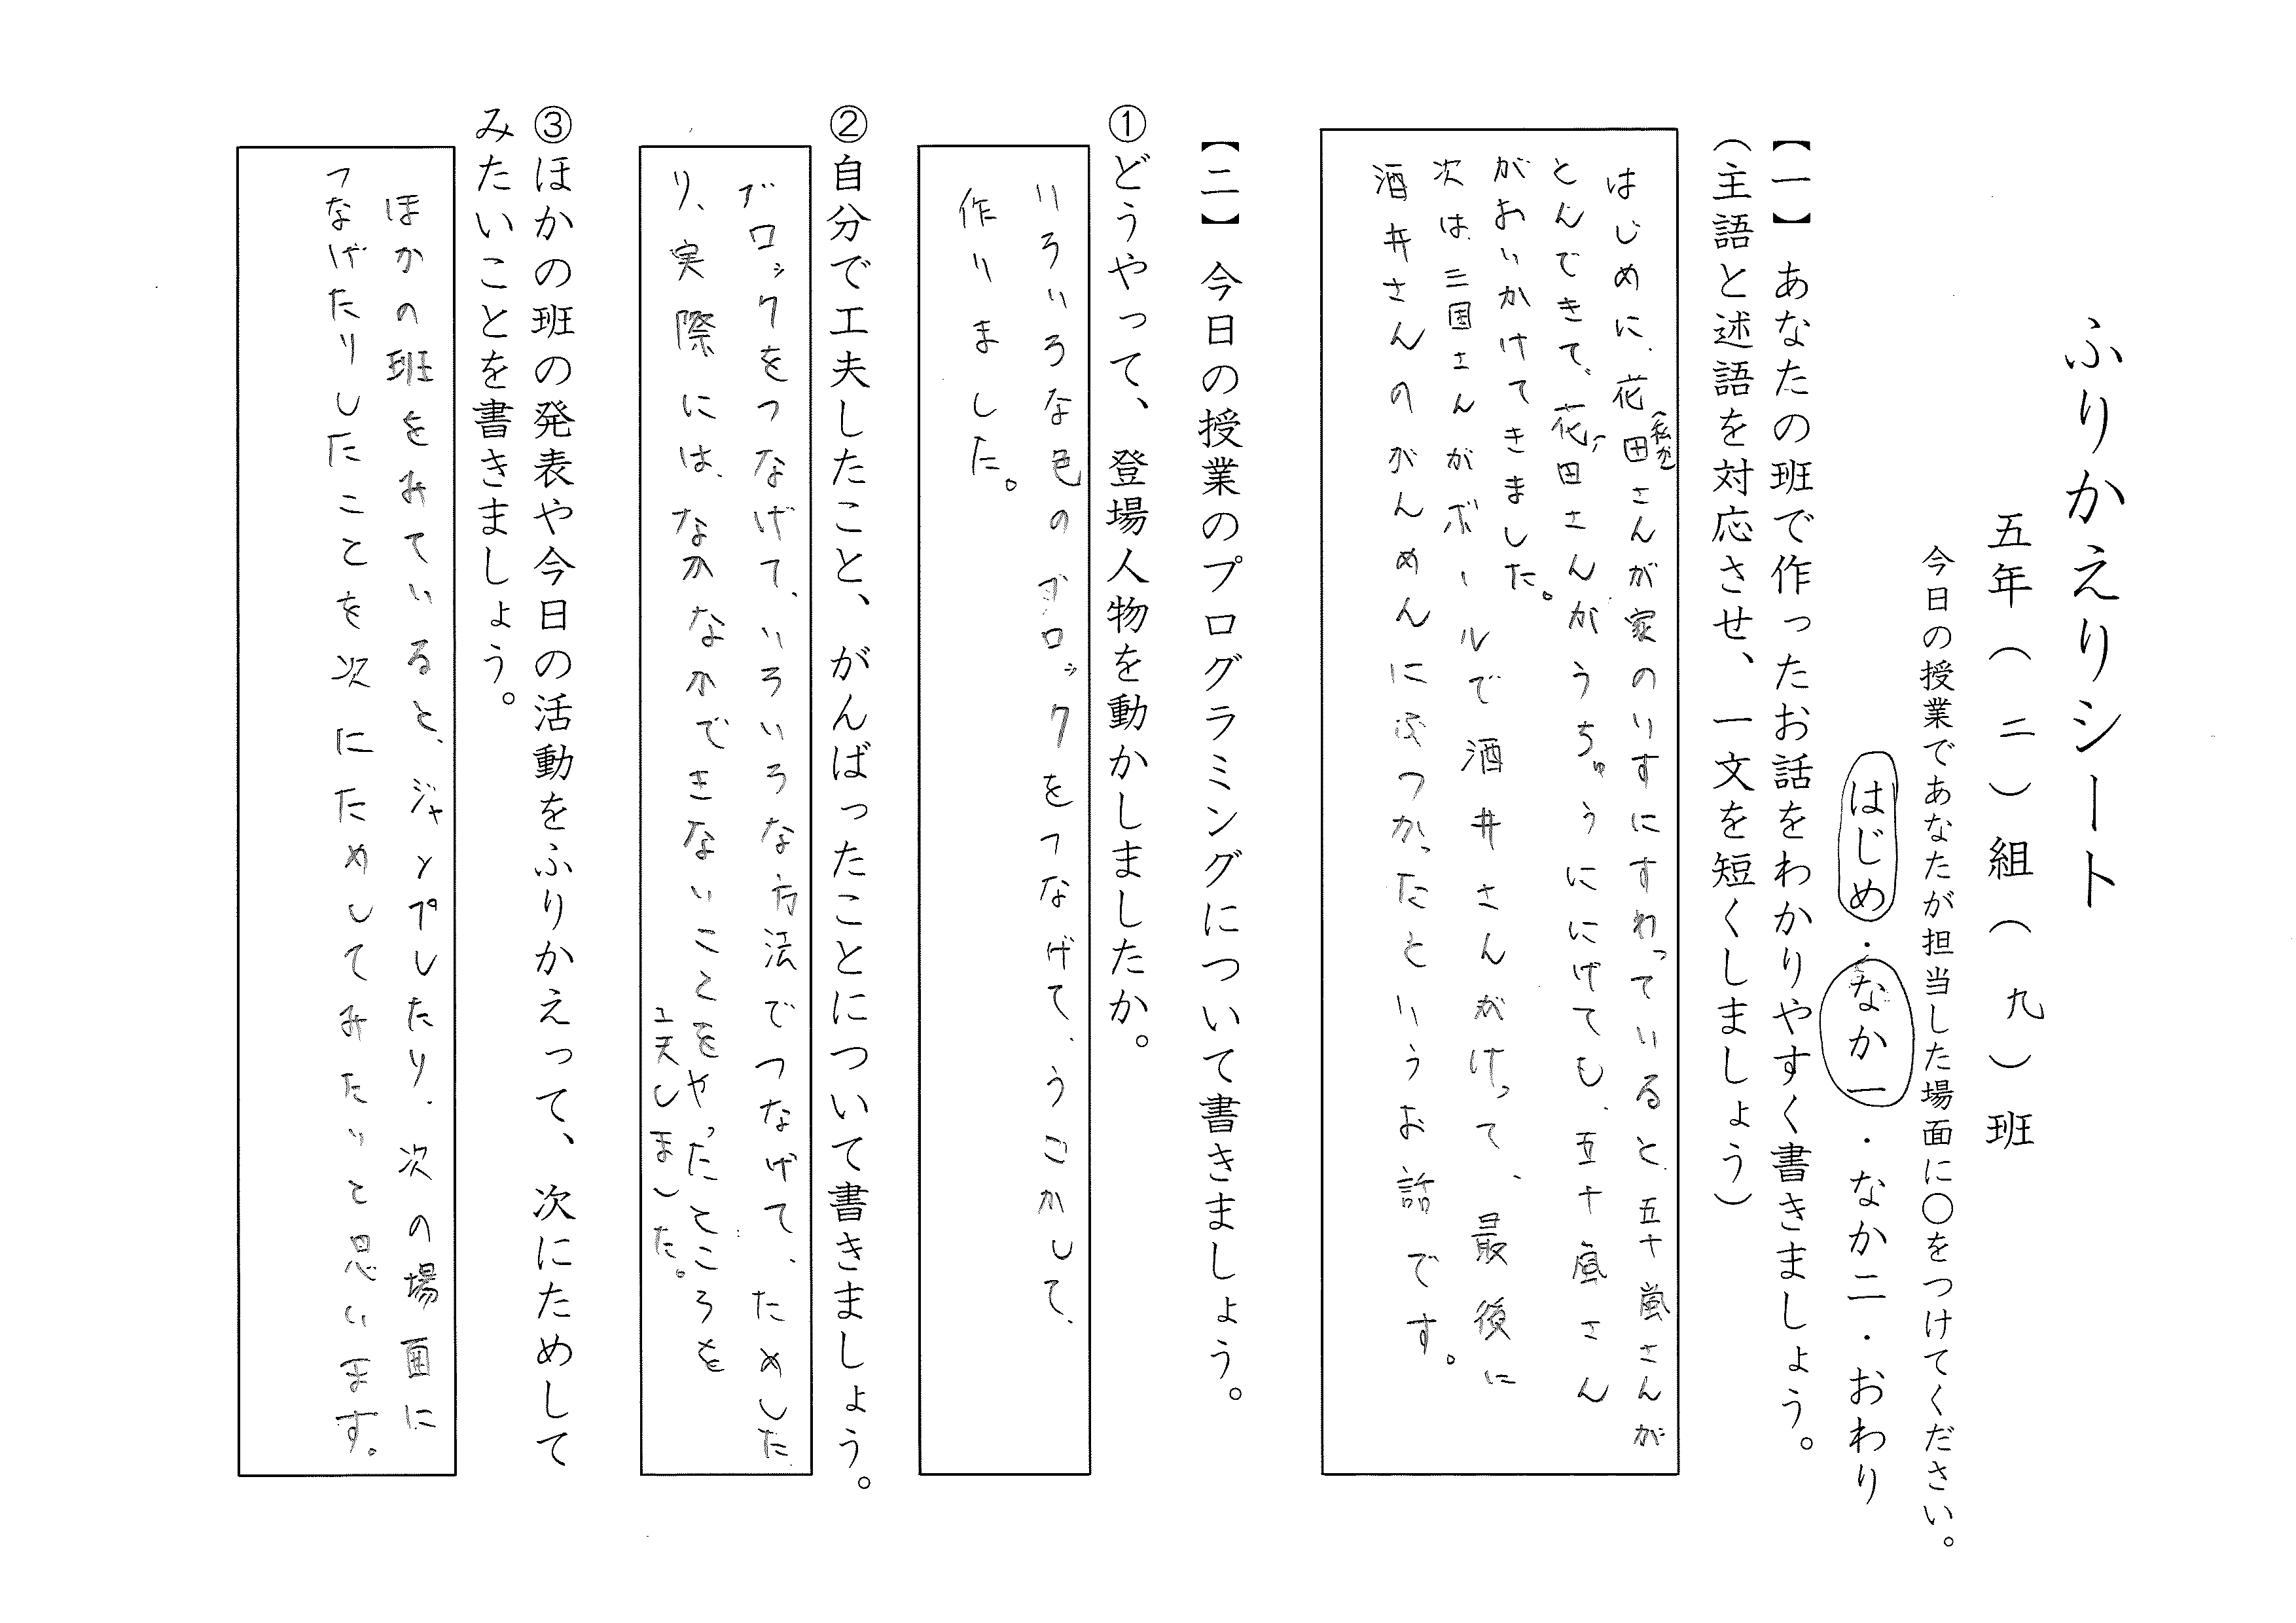 ふりかえりシート
五年（二）組（九）班
今日の授業であなたが担当した場面に〇をつけてください。
はじめ・なか一・なか二・おわり
【一】あなたの班で作ったお話をわかりやすく書きましょう。
（主語と述語を対応させ、一文を短くしましょう）
はじめに、花田さんが家のりすにすわっていると、五十嵐さんが
とんできて、花田さんがうちゅうににげても、五十嵐さん
がおいかけてきました。
次は、三国さんがボールで酒井さんがけって、最後に
酒井さんのがんめんにぶつかったというお話です。
【二】今日の授業のプログラミングについて書きましょう。
①どうやって、登場人物を動かしましたか。
いろいろな色のブロックをつなげて、うごかして、
作りました。
②自分で工夫したこと、がんばったことについて書きましょう。
ブロックをつなげて、いろいろな方法でつなげて、ためした
り、実際には、なかなかできないことをやったところを
工夫しました。
③ほかの班の発表や今日の活動をふりかえって、次にためして
みたいことを書きましょう。
ほかの班をみていると、ジャンプしたり、次の場面に
つなげたりしたことを次にためしてみたいと思います。